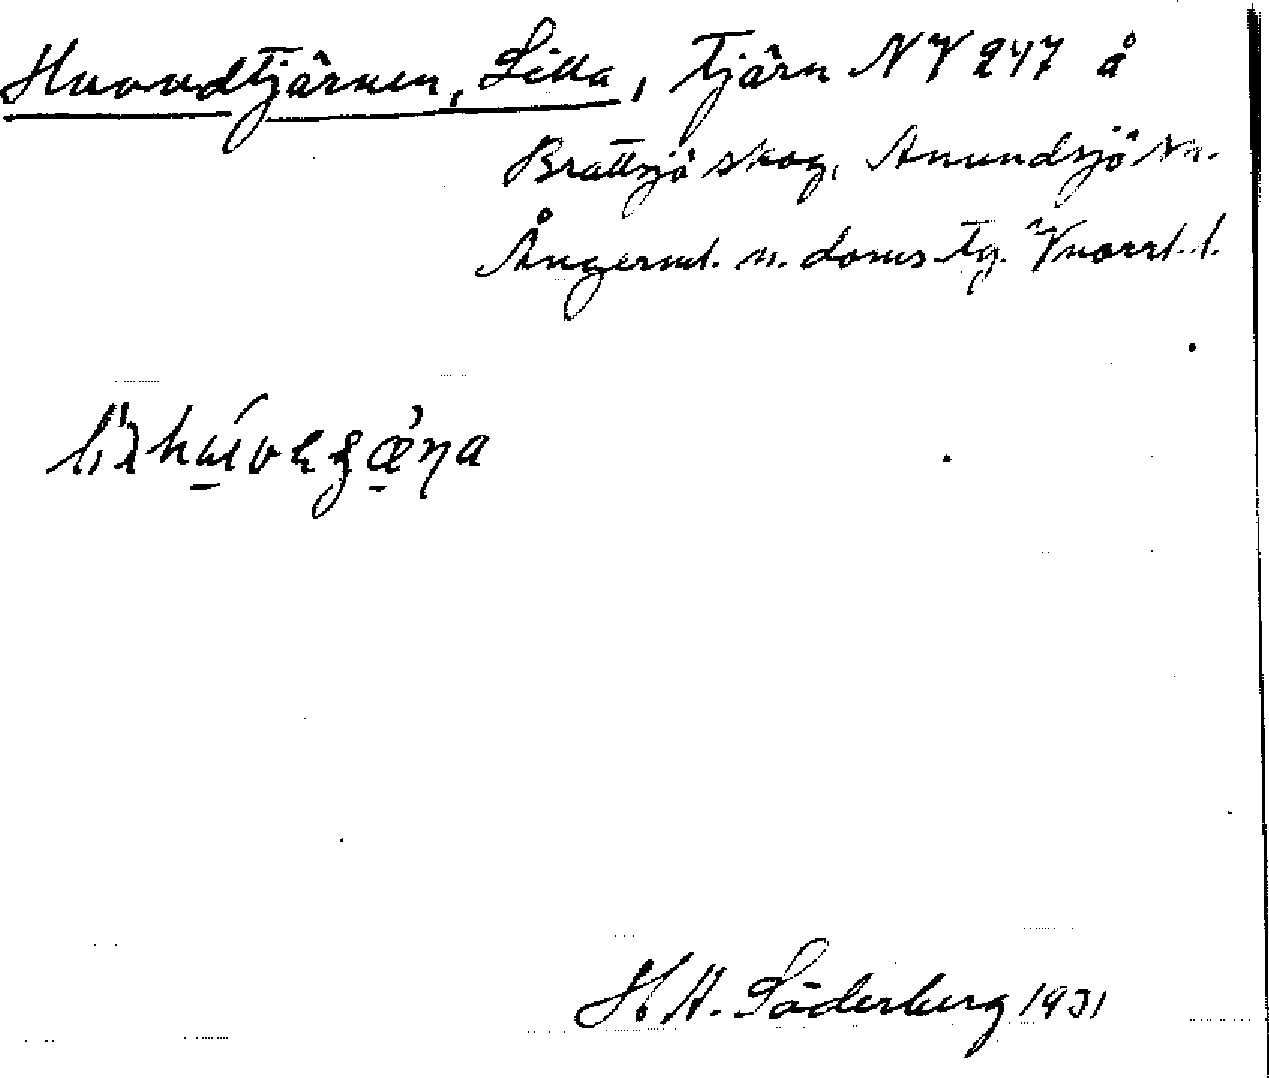 Huvudtjärnen, Lilla, tjärn NV 247 å
Brattsjö skog, Anundsjö sn.
Ångerml. n. doms. tg. Vnorrl. l.
H A. Söderberg 1931